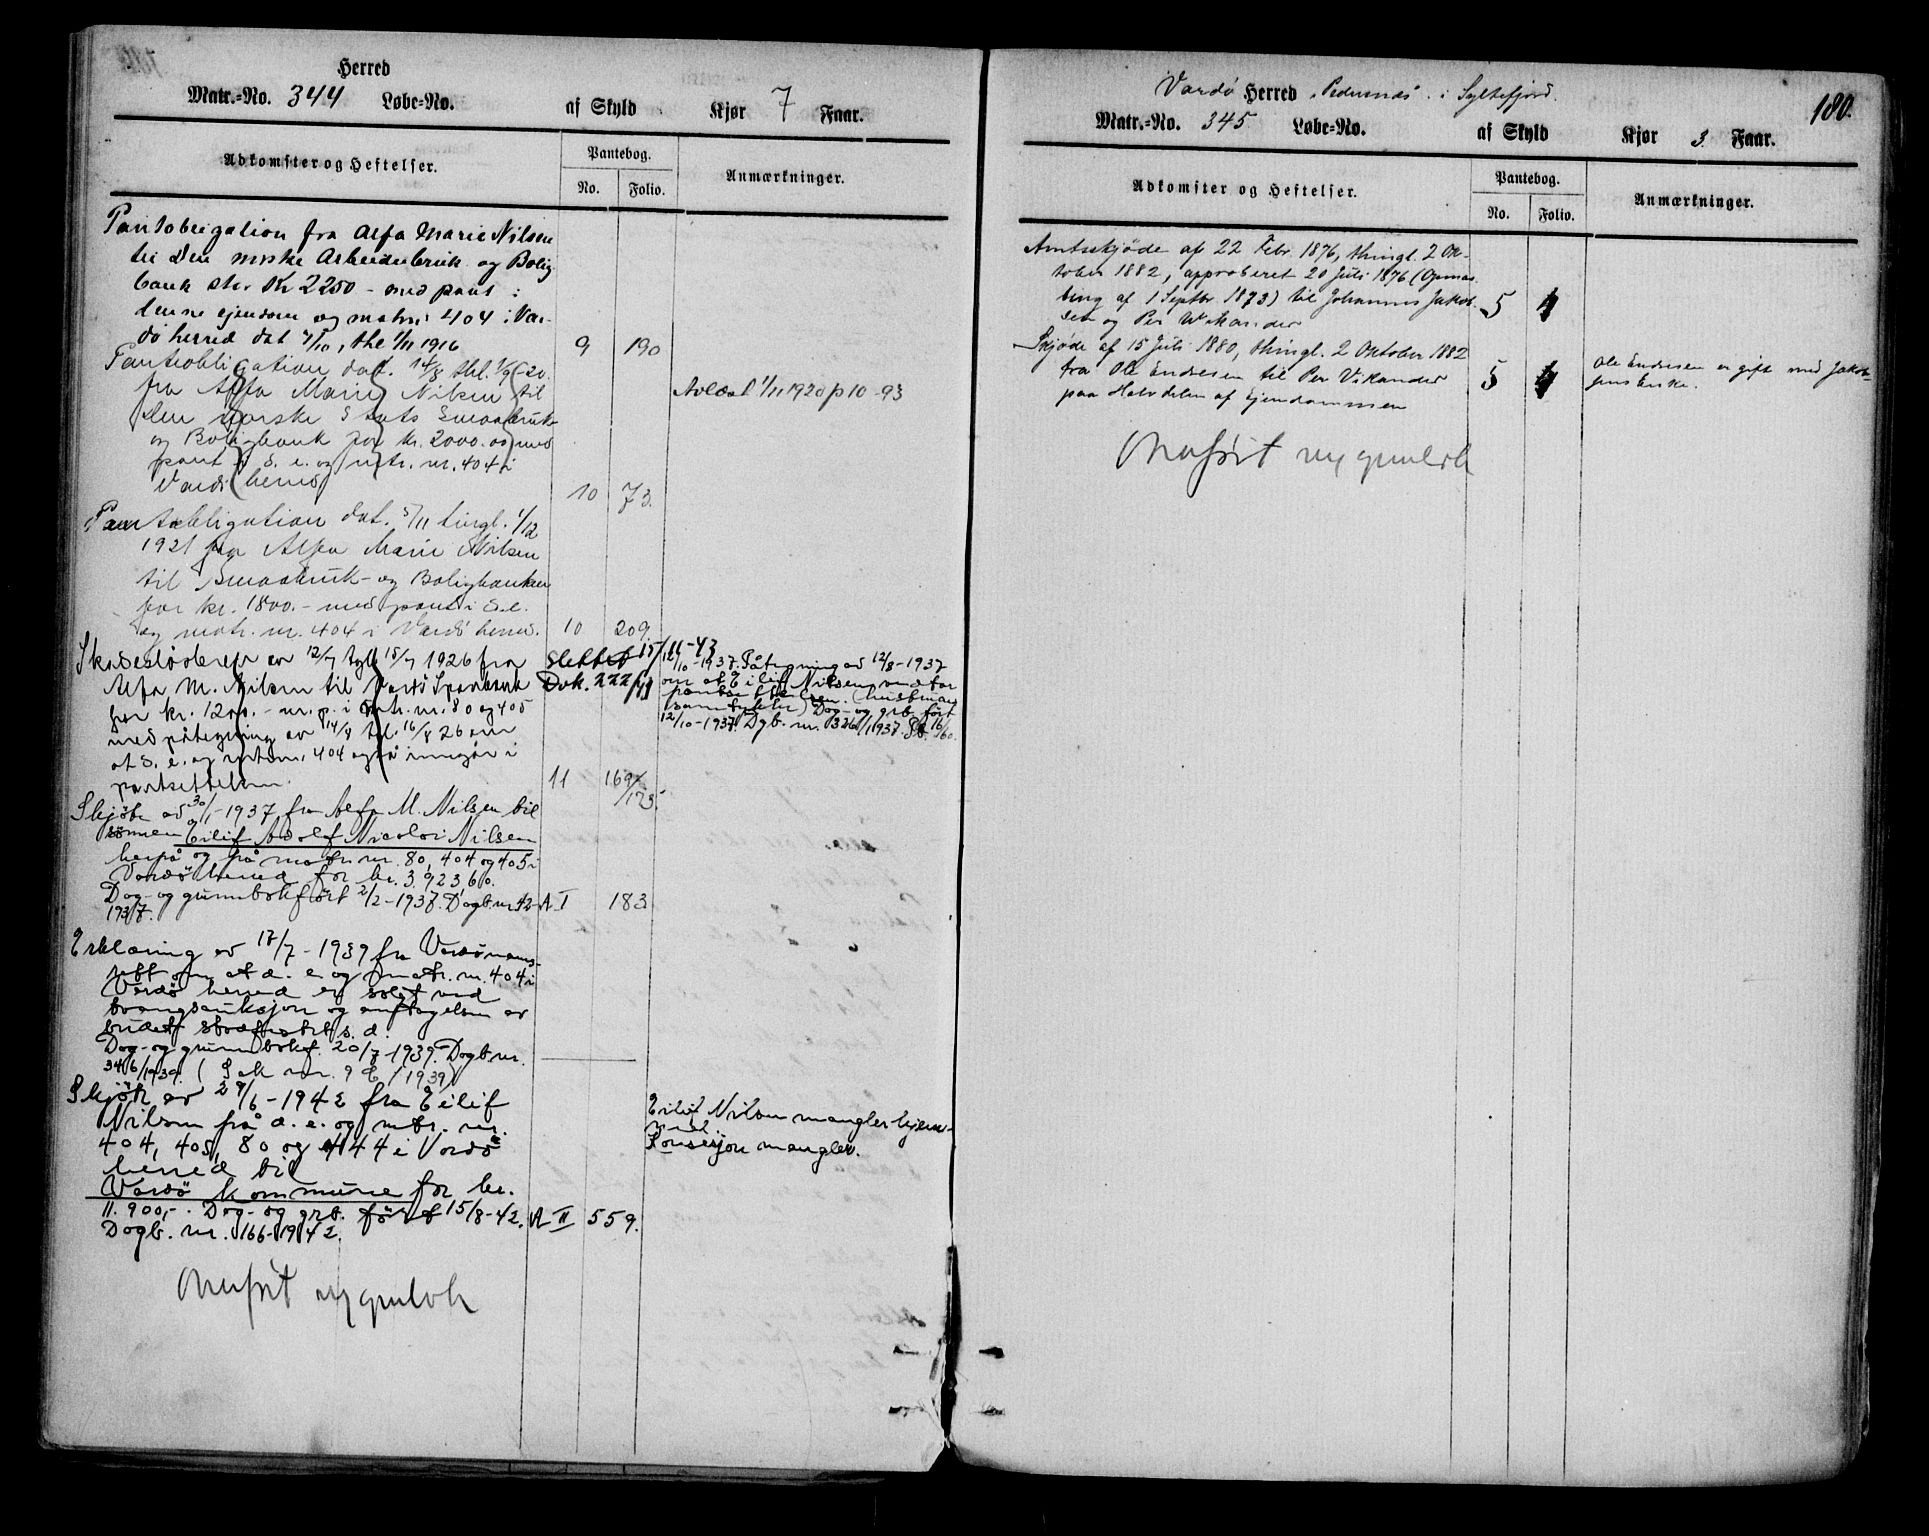 Herred
Matr.-No. 344 Løbe-No. af Skyld Kjør 7 Faar.
Adkomster og Heftelser.
Pantebog.
No. Folio.
Anmærkninger.
Pantobligation fra Alfa Marie Nilsen
til Den norske Arbeiderbruk og Bolig-
bank stor Kr 2250 - med pant i
denne ejendom og matr: 404 i Var-
dö herred dat 7/10, thl 1/11 1916 9 190
Pantobligation dat. 14/8 thl. 1/9-20.
fra Alfa Marie Nilsen til
den norske Stats Smaabruk-
og Boligbank for kr. 2000.00 med
pant i d. e. og mtr. nr. 404 i
Vardö herred 10 73.
Avlæst 1/11 1920 p 10-93
Pantobligation dat. 5/11 tingl. 1/12
1921 fra Alfa Marie Nilsen
til Smaabruk- og Boligbanken
for kr. 1800.- med pant i d.e.
og matr. nr. 404 i Vardö herred. 10 209.
Skadeslösbrev av 12/7 tgl. 15/7 1926 fra
Alfa M. Nilsen til Vardö Sparebank
for kr. 1200.- m. p. i mtr. nr. 80 og 405
med påtegning av 14/8 tgl. 16/8 26 om
at d. e. og mtrnr. 404 også inngår i
pantsettelsen. 11 169/173.
Slettet 15/11-43
Dok. 222/43
12/10-1937. Påtegning av 12/8-1937
om at Eilif Nilsen vedtar
pantsettelsen. (hustruen
samtykker) Dag- og grb. ført
12/10-1937. Dgb. nr. 326/1937.
Skjöte av 30/1-1937 fra Alfa M. Nilsen til
sönnen Eilif Adolf Nicolai Nilsen
herpå og på matr. nr. 80, 404 og 405 i
Vardö herred for kr. 3.923,60.
Dag- og grunnbokfört 2/2-1937. Dagb. nr. 42-
1937. A I 183
Erklæring av 17/7-1939 fra Vardö nams-
rett om at d. e. og matr. nr. 404 i
Vardö herred er solgt ved
tvangsauksjon og antagelsen av
budet stadfestet s. d.
Dag- og grunnbokf. 20/7-1939. Dagb. nr.
346/1939. (Sak nr. 9 /1939)
Skjöte av 29/6-1942 fra Eilif
Nilsen på d. e. og mtr. nr.
404, 405, 80 og 444 i Vardö
herred til
Vardö kommune for kr.
11.900,-. Dag- og grb. fört 15/8-42. A II 559.
Dagb. nr. 166-1942.
Eilif Nilsen mangler hjem-
mel.
Konsesjon mangler.
Avsluttet ny grunnbok
180.
Vardö Herred Pedersnæs i Syltefjord.
Matr.-No. 345 Løbe-No. af Skyld Kjør 3 Faar.
Adkomster og Heftelser.
Pantebog.
No. Folio.
Anmærkninger.
Amtsskjøde af 22 Febr. 1876, thingl. 2 Ok-
tober 1882, approberet 20 Juli 1876 (Opmaa-
ling af 1 Septbr 1873) til Johannes Jakob-
sen og Per Wikander 5 4
Skjøde af 15 Juli 1880, thingl. 2 Oktober 1882
fra Ole Endresen til Per Vikander
paa Halvdelen af Ejendommen 5 4
Ole Endresen er gift med Jakob-
sens Enke.
Avsluttet ny grunnbok